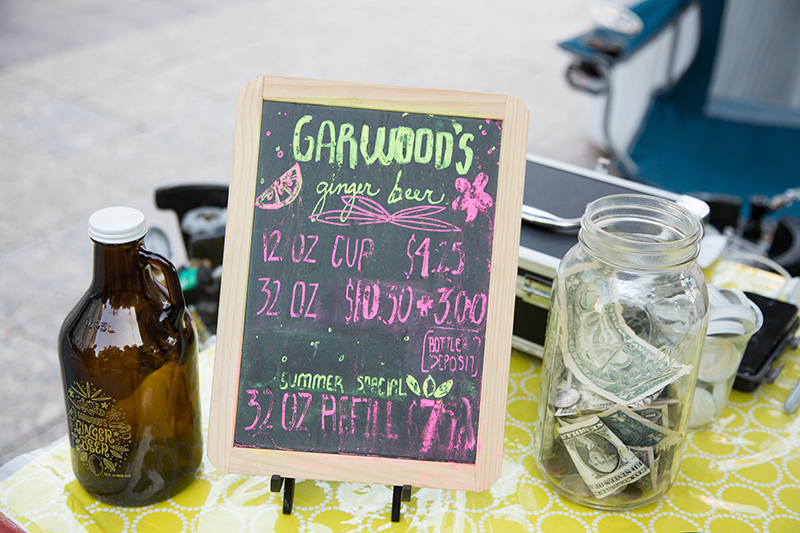 GARWOOD'S
ginger beer
12 OZ CUP $4.25
32 OZ $10.50 + 3.00
BOTTLE
DEPOSIT
SUMMER SPECIAL
32 OZ REFILL
GINGER
BEER